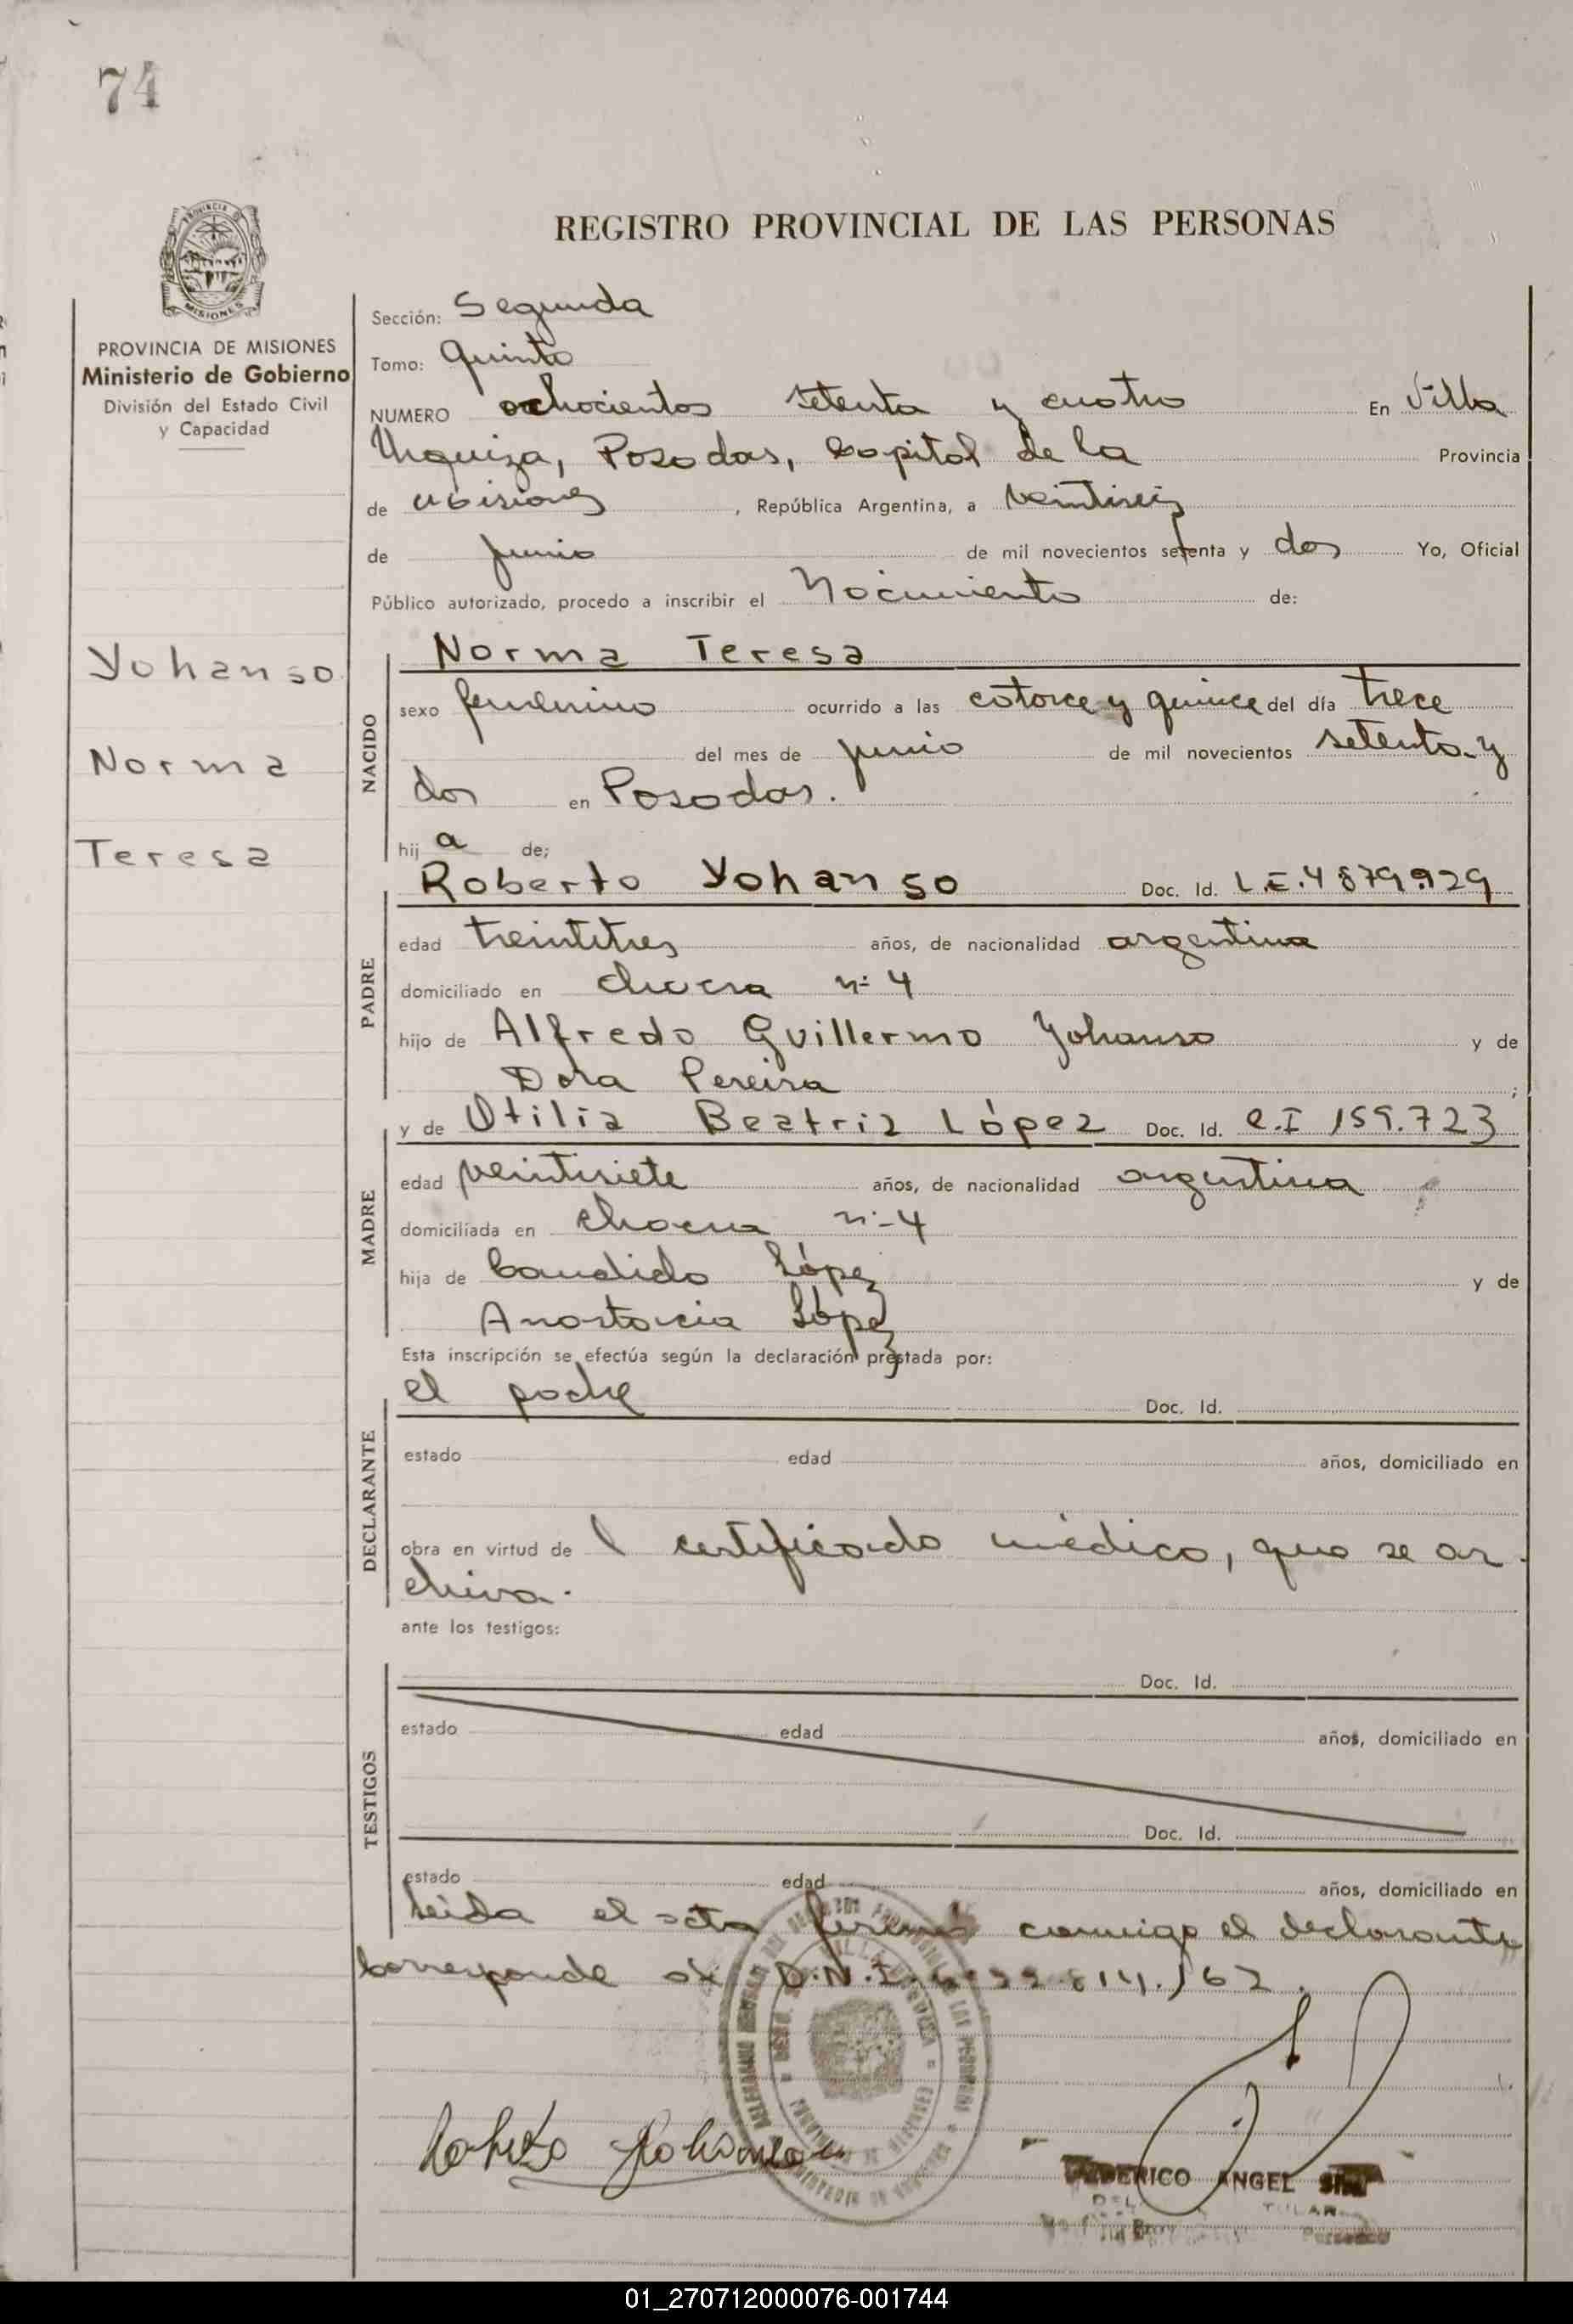 74
REGISTRO PROVINCIAL DE LAS PERSONAS
PROVINCIA DE MISIONES
Ministerio de Gobierno
División del Estado Civil
y Capacidad
Yohanso
Norma
Teresa
Sección: Segunda
Tomo: Quinto
NUMERO ochocientos setenta y cuatro En Villa
Urquiza, Posadas, Capital de la Provincia
de Misiones, República Argentina, a veintiseis
de junio de mil novecientos setenta y dos Yo, Oficial
Público autorizado, procedo a inscribir el Nacimiento de:
NACIDO
Norma Teresa
sexo femenino ocurrido a las catorce y quince del día trece
del mes de junio de mil novecientos setenta y
dos en Posadas.
hij a de;
PADRE
Roberto Yohanso Doc. Id. L.E. 4879.929
edad treintitres años, de nacionalidad argentina
domiciliado en chacra nº 4
hijo de Alfredo Guillermo Yohanso y de
Dora Pereira ;
MADRE
y de Otilia Beatriz López Doc. Id. C.I 159.723
edad veintisiete años, de nacionalidad argentina
domiciliada en chacra nº 4
hija de Candido López y de
Anastacia López
Esta inscripción se efectúa según la declaración prestada por:
DECLARANTE
el padre Doc. Id.
estado edad años, domiciliado en
obra en virtud de l certificado médico, que se ar-
chiva.
ante los testigos:
TESTIGOS
Doc. Id.
estado edad años, domiciliado en
Doc. Id.
estado edad años, domiciliado en
Leida el acta firma conmigo el declarante
Corresponde al D.N.I.
Roberto Yohanso
FEDERICO ANGEL
01_270712000076-001744